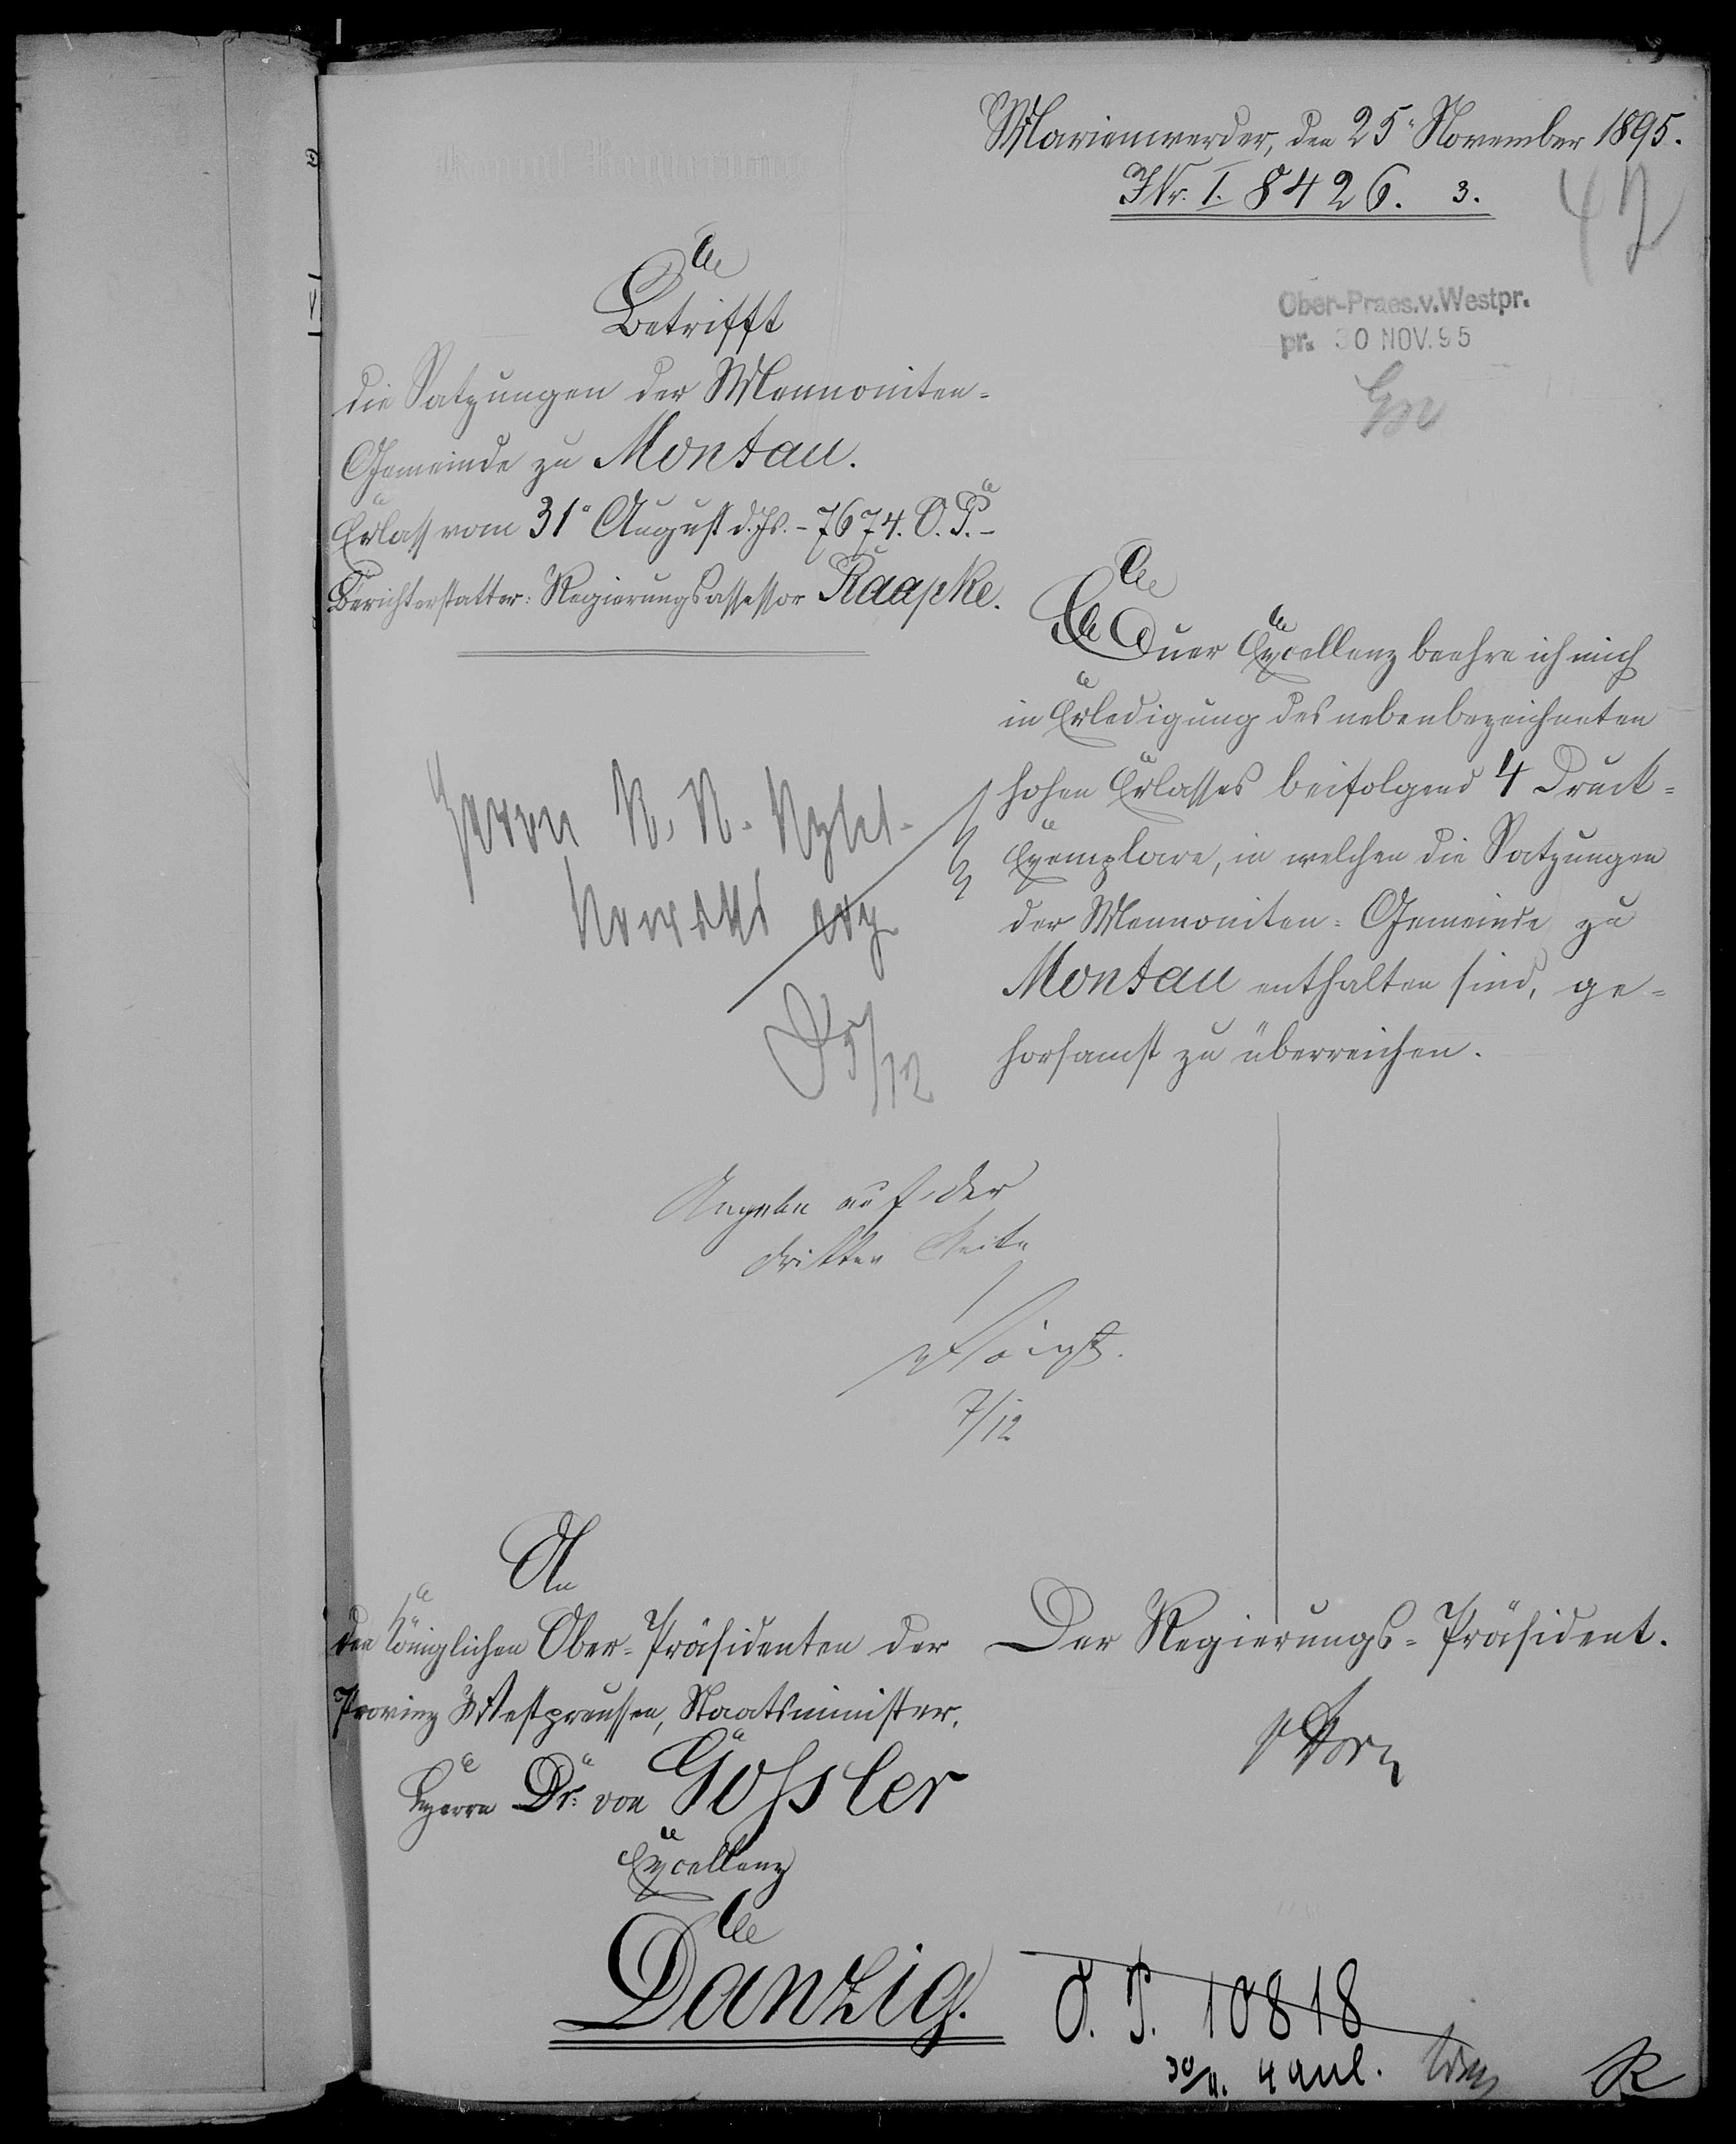 Marienwerder, den 25. November 1895.
JNr. I. 8426. 3.
42
Ober-Praes.v.Westpr.
pr. 30 NOV. 95
Betrifft
die Satzungen der Mennoniten-
Gemeinde zu Montau.
Erlass vom 31. August d. Js. - 7674. O. P. -
Berichterstatter: Regierungsassessor Raapke.
Euer Excellenz beehre ich mich
in Erledigung des nebenbezeichneten
hohen Erlasses beifolgend 4 Druck-
Exemplare, in welchen die Satzungen
der Mennoniten-Gemeinde zu
Montau enthalten sind, ge-
horsamst zu überreichen.
Herrn
5/12
auf der
dritten Seite
7/12
An
den Königlichen Ober-Präsidenten der
Provinz Westpreussen, Staatsminister,
Herrn Dr. von Goßler
Excellenz
Danzig.
Der Regierungs-Präsident.
O. P. 10818
30/11. 4 anl.
R